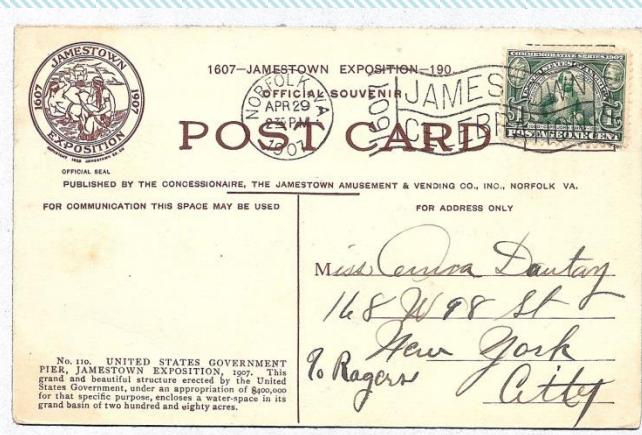 JAMESTOWN
1607 1907
EXPOSITION
OFFICIAL SEAL
1607—JAMESTOWN EXPOSITION—190
OFFICIAL SOUVENIR
POST CARD
NORFOLK, VA.
APR 29
1907
JAMESTOWN
1907
COMMEMORATIVE SERIES 1907
POSTAGE ONE CENT
PUBLISHED BY THE CONCESSIONAIRE, THE JAMESTOWN AMUSEMENT & VENDING CO., INC., NORFOLK VA.
FOR COMMUNICATION THIS SPACE MAY BE USED
FOR ADDRESS ONLY
No. 110. UNITED STATES GOVERNMENT
PIER, JAMESTOWN EXPOSITION, 1907. This
grand and beautiful structure erected by the United
States Government, under an appropriation of $400,000
for that specific purpose, encloses a water-space in its
grand basin of two hundred and eighty acres.
Miss
168 W 98 St
New York
c/o Rogers City